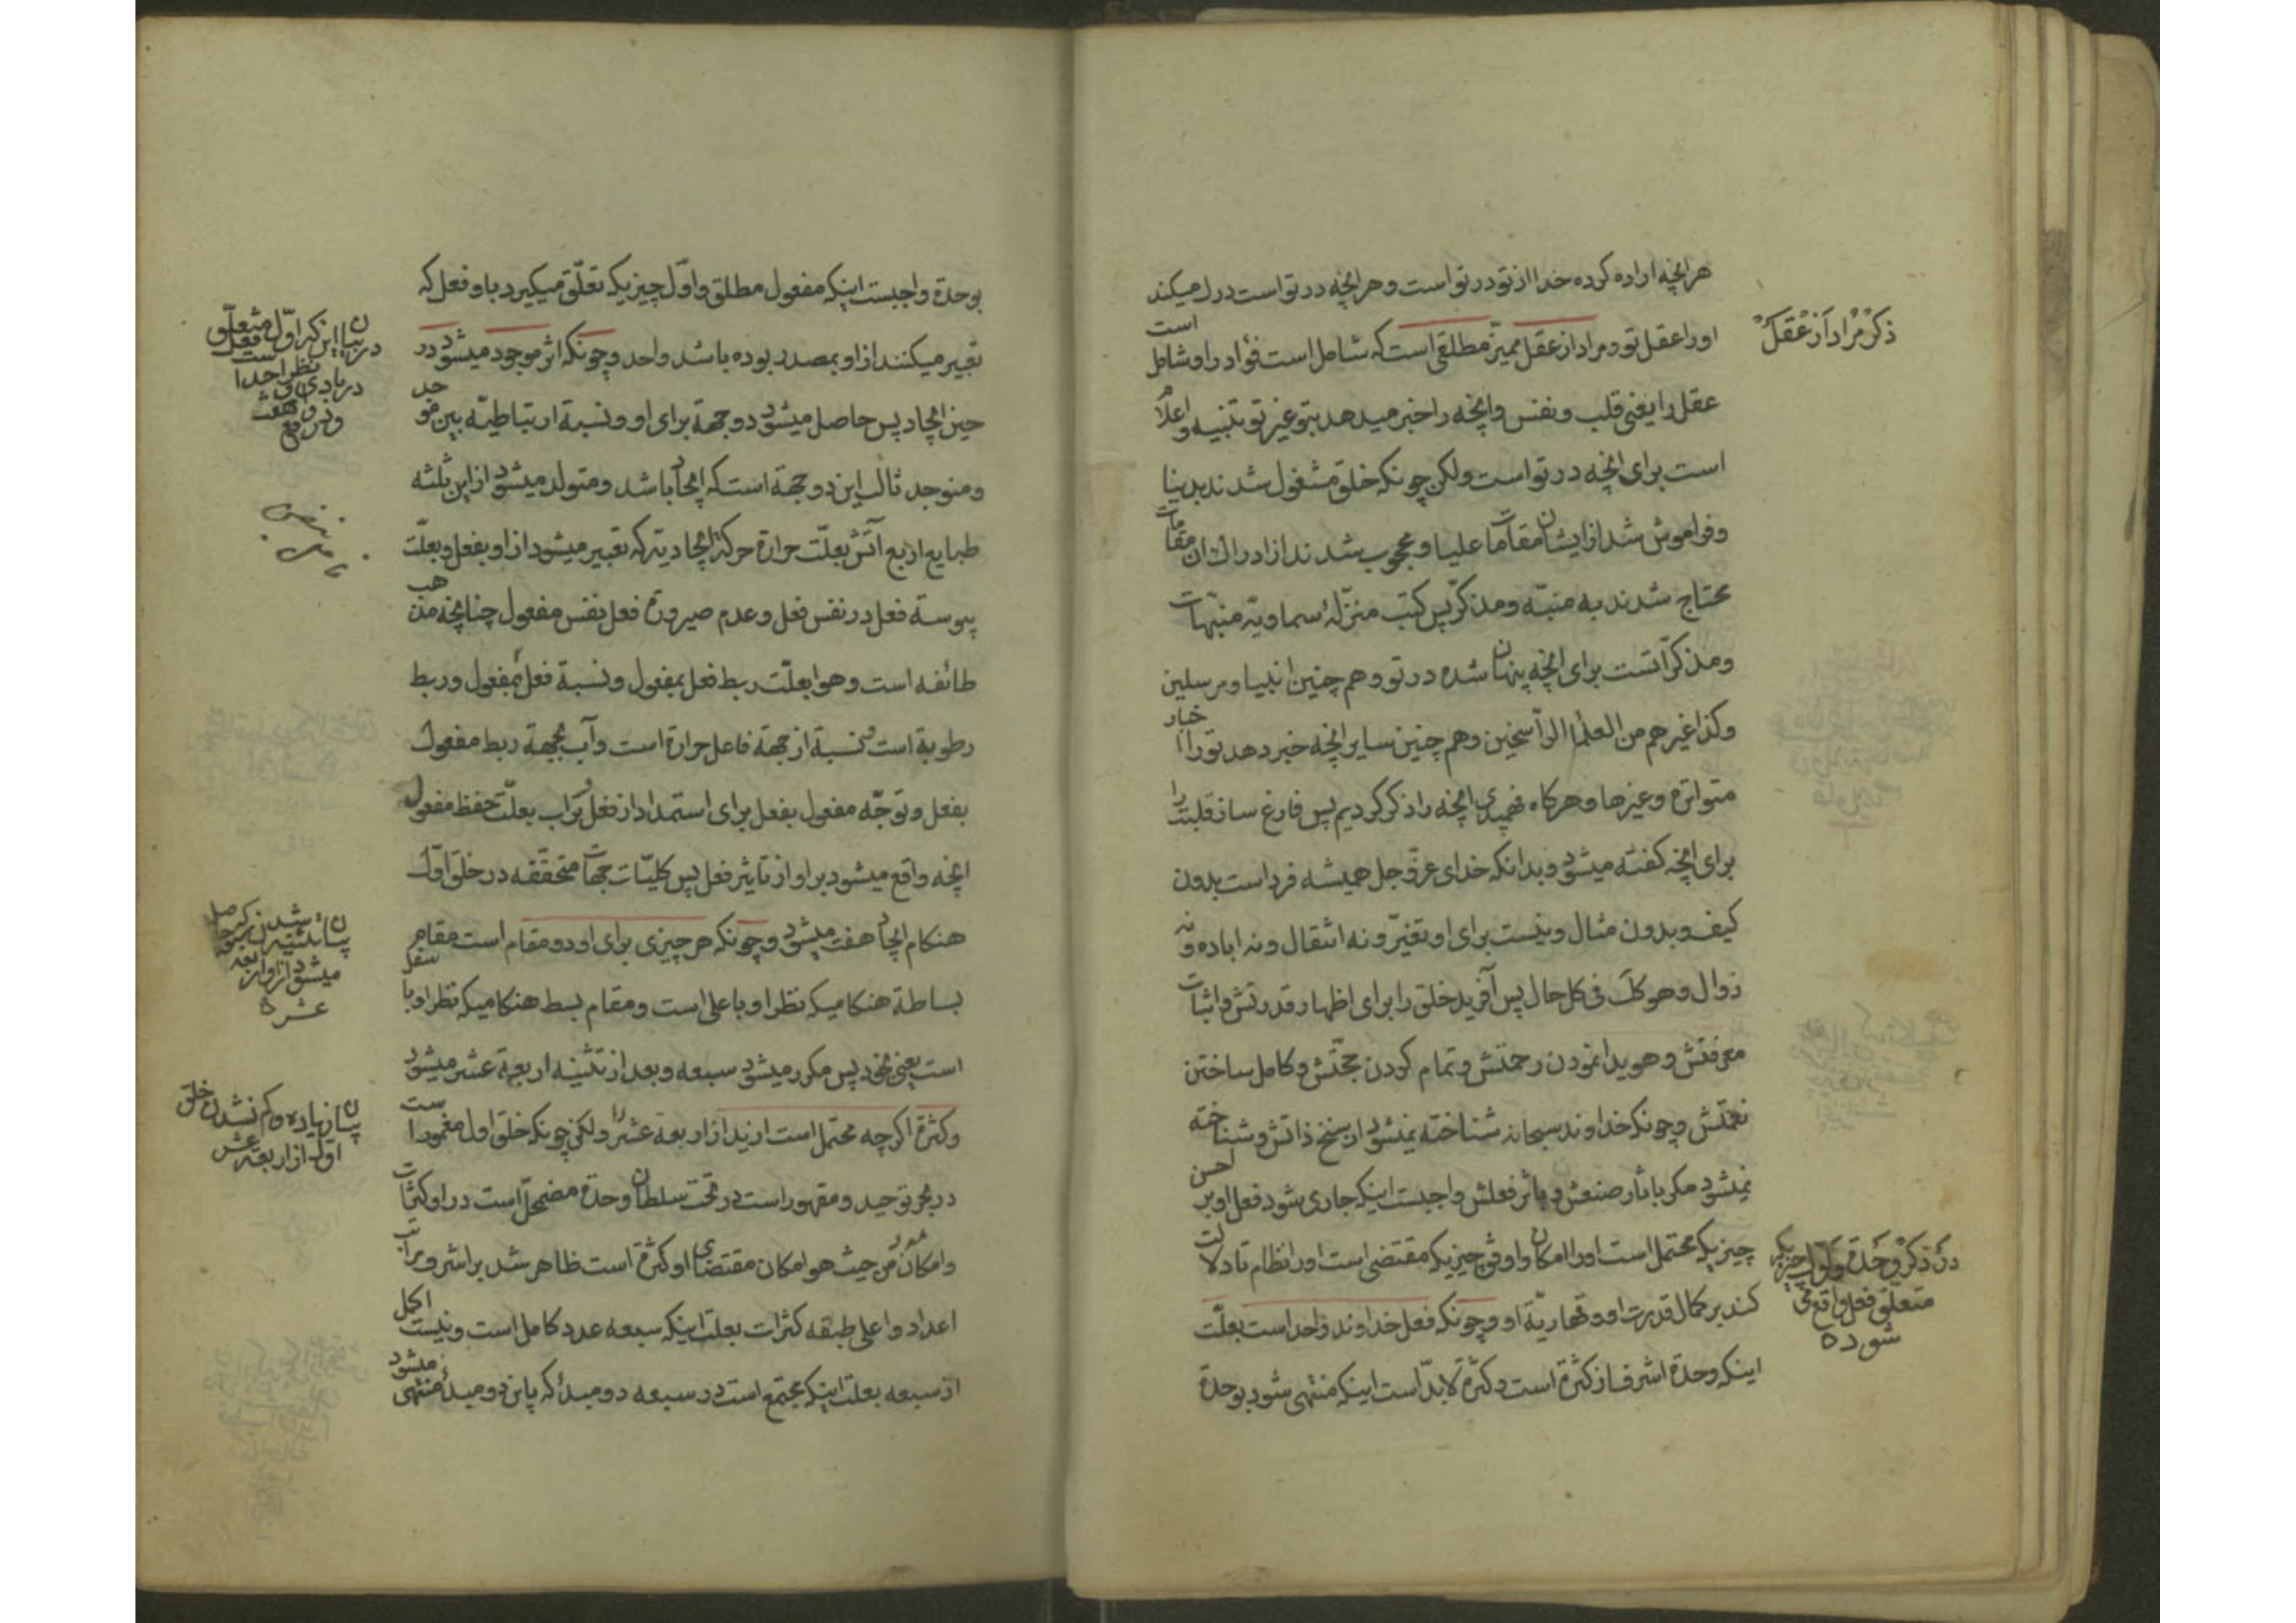 هر انچه اراده کرده خدا از تو در تو است و هر انچه در تو است درك میکند
اورا عقل تو و مراد از عقل ممیّز مطلقی است که شامل است فؤاد را و شامل است
ذکر مراد از عقل
عقل را یعنی قلب و نفس و انچه را خبر میدهد بتو غیر تو تنبیه و اعلام
است برای انچه در تو است ولکن چونکه خلق مشغول شدند بدنیا
و فراموش شد از ایشان مقامات علیا و محجوب شدند از ادراك ان مقامات
محتاج شدند به منبّه و مذکّر پس کتب منزله سماویّه منبّهات
و مذکّر آتست برای انچه پنهان شده در تو و هم چنین انبیا و مرسلین
و کذا غیرهم من العلما الرّاسخین و هم چنین سایر انچه خبر دهد تورا اخبار
متواتره و غیرها و هرکاه فهمیدی انچه را ذکر کردیم پس فارغ ساز قلبت را
برای انچه کفته میشود و بدانکه خدای عزّ و جل همیشه فرد است بدون
کیف و بدون مثال و نیست برای او تغیّر و نه انتقال و نه اباده و نه
زوال و هو کك فی کل حال پس آفرید خلق را برای اظهار قدرتش و اثبات
معرفتش و هویدا نمودن رحمتش و تمام کردن حجّتش و کامل ساختن
نعمتش و چونکه خداوند سبحانه شناخته نمیشود از سنخ ذاتش و شناخته
نمیشود مکر باثار صنعش و باثر فعلش واجبست اینکه جاری شود فعل او بر احسن
چیزیکه محتمل است اورا امکان و اوفق چیزیکه مقتضی است اورا نظام تا دلالت
کند بر کمال قدرت او و قهاریّة او و چونکه فعل خداوند واحد است بعلّت
در ذکر وحدة و اوّل چیزیکه
متعلق فعل واقع می
شوده
اینکه وحدة اشرف از کثرة است و کثرة لابدّ است اینکه منتهی شود بوحدة
بوحدة واجبست اینکه مفعول مطلق و اوّل چیزیکه تعلّق میکیرد باو فعل که
تعبیر میکنند از او بمصدر بوده باشد واحد و چونکه اثر موجود میشود در
حین ایجاد پس حاصل میشود دو جهة برای او و نسبة ارتباطیّه بین موجد
و منوجد ثالث این دو جهة است که ایجاد باشد و متولد میشود از این ثلثه
طبایع اربع آتش بعلّت حرارة حرکة ایجادیّه که تعبیر میشود از او بفعل و بعلّت
یبوسة فعل در نفس فعل و عدم صیرورة فعل نفس مفعول چنانچه مذهب
طائفه است و هوا بعلّت ربط فعل بمفعول و نسبة فعل بمفعول و ربط
رطوبة است و نسبة از جهة فاعل حرارة است و آب بجهة ربط مفعول
بفعل و توجّه مفعول بفعل برای استمداد از فعل و تراب بعلّت حفظ مفعول
انچه واقع میشود بر او از تاثیر فعل پس کلیّات جهات متحققه در خلق اوّل
هنکام ایجاد هفت میشود و چونکه هر چیزی برای او دو مقام است مقام
بساطة هنکامیکه نظر او با علی است و مقام بسط هنکامیکه نظر او با سفل
است یعنی بخود پس مکرر میشود سبعه و بعد از تثنیه اربعة عشر میشود
و کثرة اکر چه محتمل است ازید از اربعة عشر را ولکن چونکه خلق اول مغمور است
بیان زیاده و کم نشدن خلق
اول از اربعة عشر
در بحر توحید و مقهور است در تحت سلطان وحدة مضمحلّ است در او کثرات
و امکان من حیث هو امکان مقتضای او کثرة است ظاهر شد بر اشرف مراتب
اعداد و اعلی طبقه کثرات بعلت اینکه سبعه عدد کامل است و نیست اکمل
از سبعه بعلت اینکه مجتمع است در سبعه دو مبدأ که باین دو مبدأ منتهی میشود